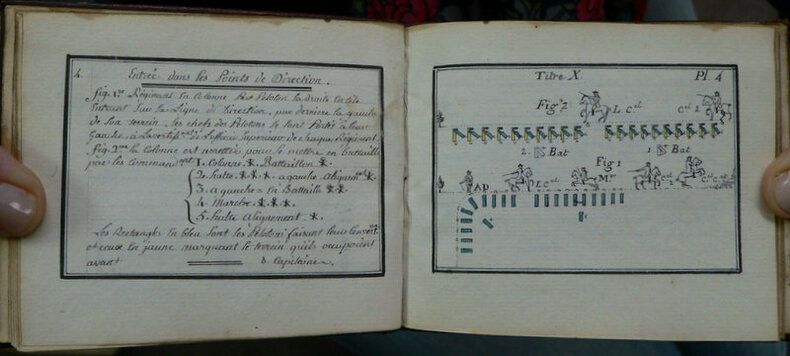 4. Entrée dans les Points de Direction.
fig. 1re Régiment En Colonne Par Peloton la droite En tête
Entrant sur la Ligne de Direction, par derrière la gauche
de Son terrein. les chefs des Pelotons Se sont Portés à leur
Gauche, l'officier Superieur de chaque Régiment
fig. 2me la Colonne est arrettée pour se mettre en battaille
par les Commandmet 1. Colonne * Battaillon *.
2. halte. *. *. * a gauche alignemt *.
3. a gauche = En Bataille *. *
4. Marche. *. *. *
5. halte alignement. *.
Les Rectangles En bleu Sont les Peloton faisant leurs Convons
et ceux En jaune marquant le terrein qu'ils occupoient
avant
d. Capitaine.
Titre X. Pl. 4
Fig 2 L. Cel Cel 2
2 Bat 1 Bat
Fig 1
AD LCel Mor Cel Cel